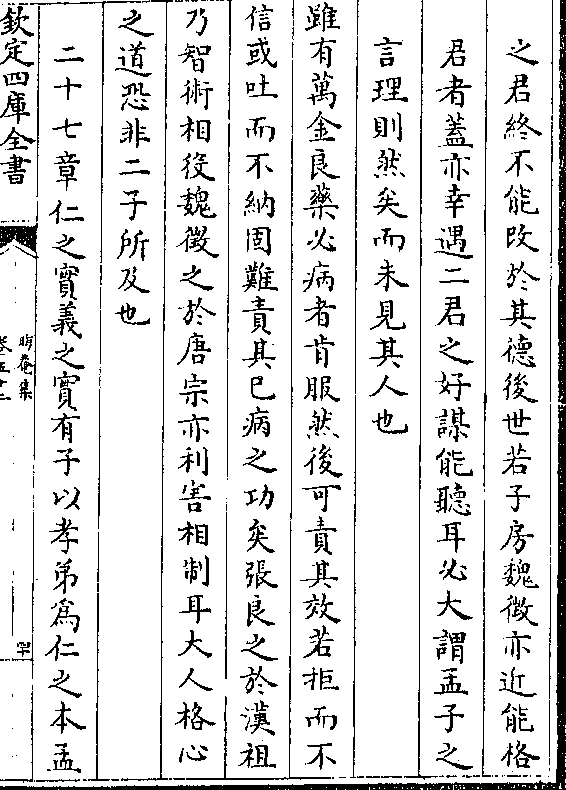 之君終不能改於其德後世若子房魏徴亦近能格
君者蓋亦幸遇二君之好謀能聽耳必大謂孟子之
言理則然矣而未見其人也
雖有萬金良藥必病者肯服然後可責其效若拒而不
信或吐而不納固難責其已病之功矣張良之於漢祖
乃智術相役魏徴之於唐宗亦利害相制耳大人格心
之道恐非二子所及也
二十七章仁之實義之實有子以孝弟為仁之本孟
欽定四庫全書
晦菴集
卷五十二